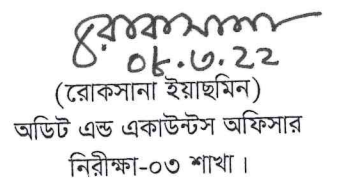 রোকসানা
০৮.৩.২২
(রোকসানা ইয়াছমিন)
অডিট এন্ড একাউন্টস অফিসার
নিরীক্ষা-০৩ শাখা।